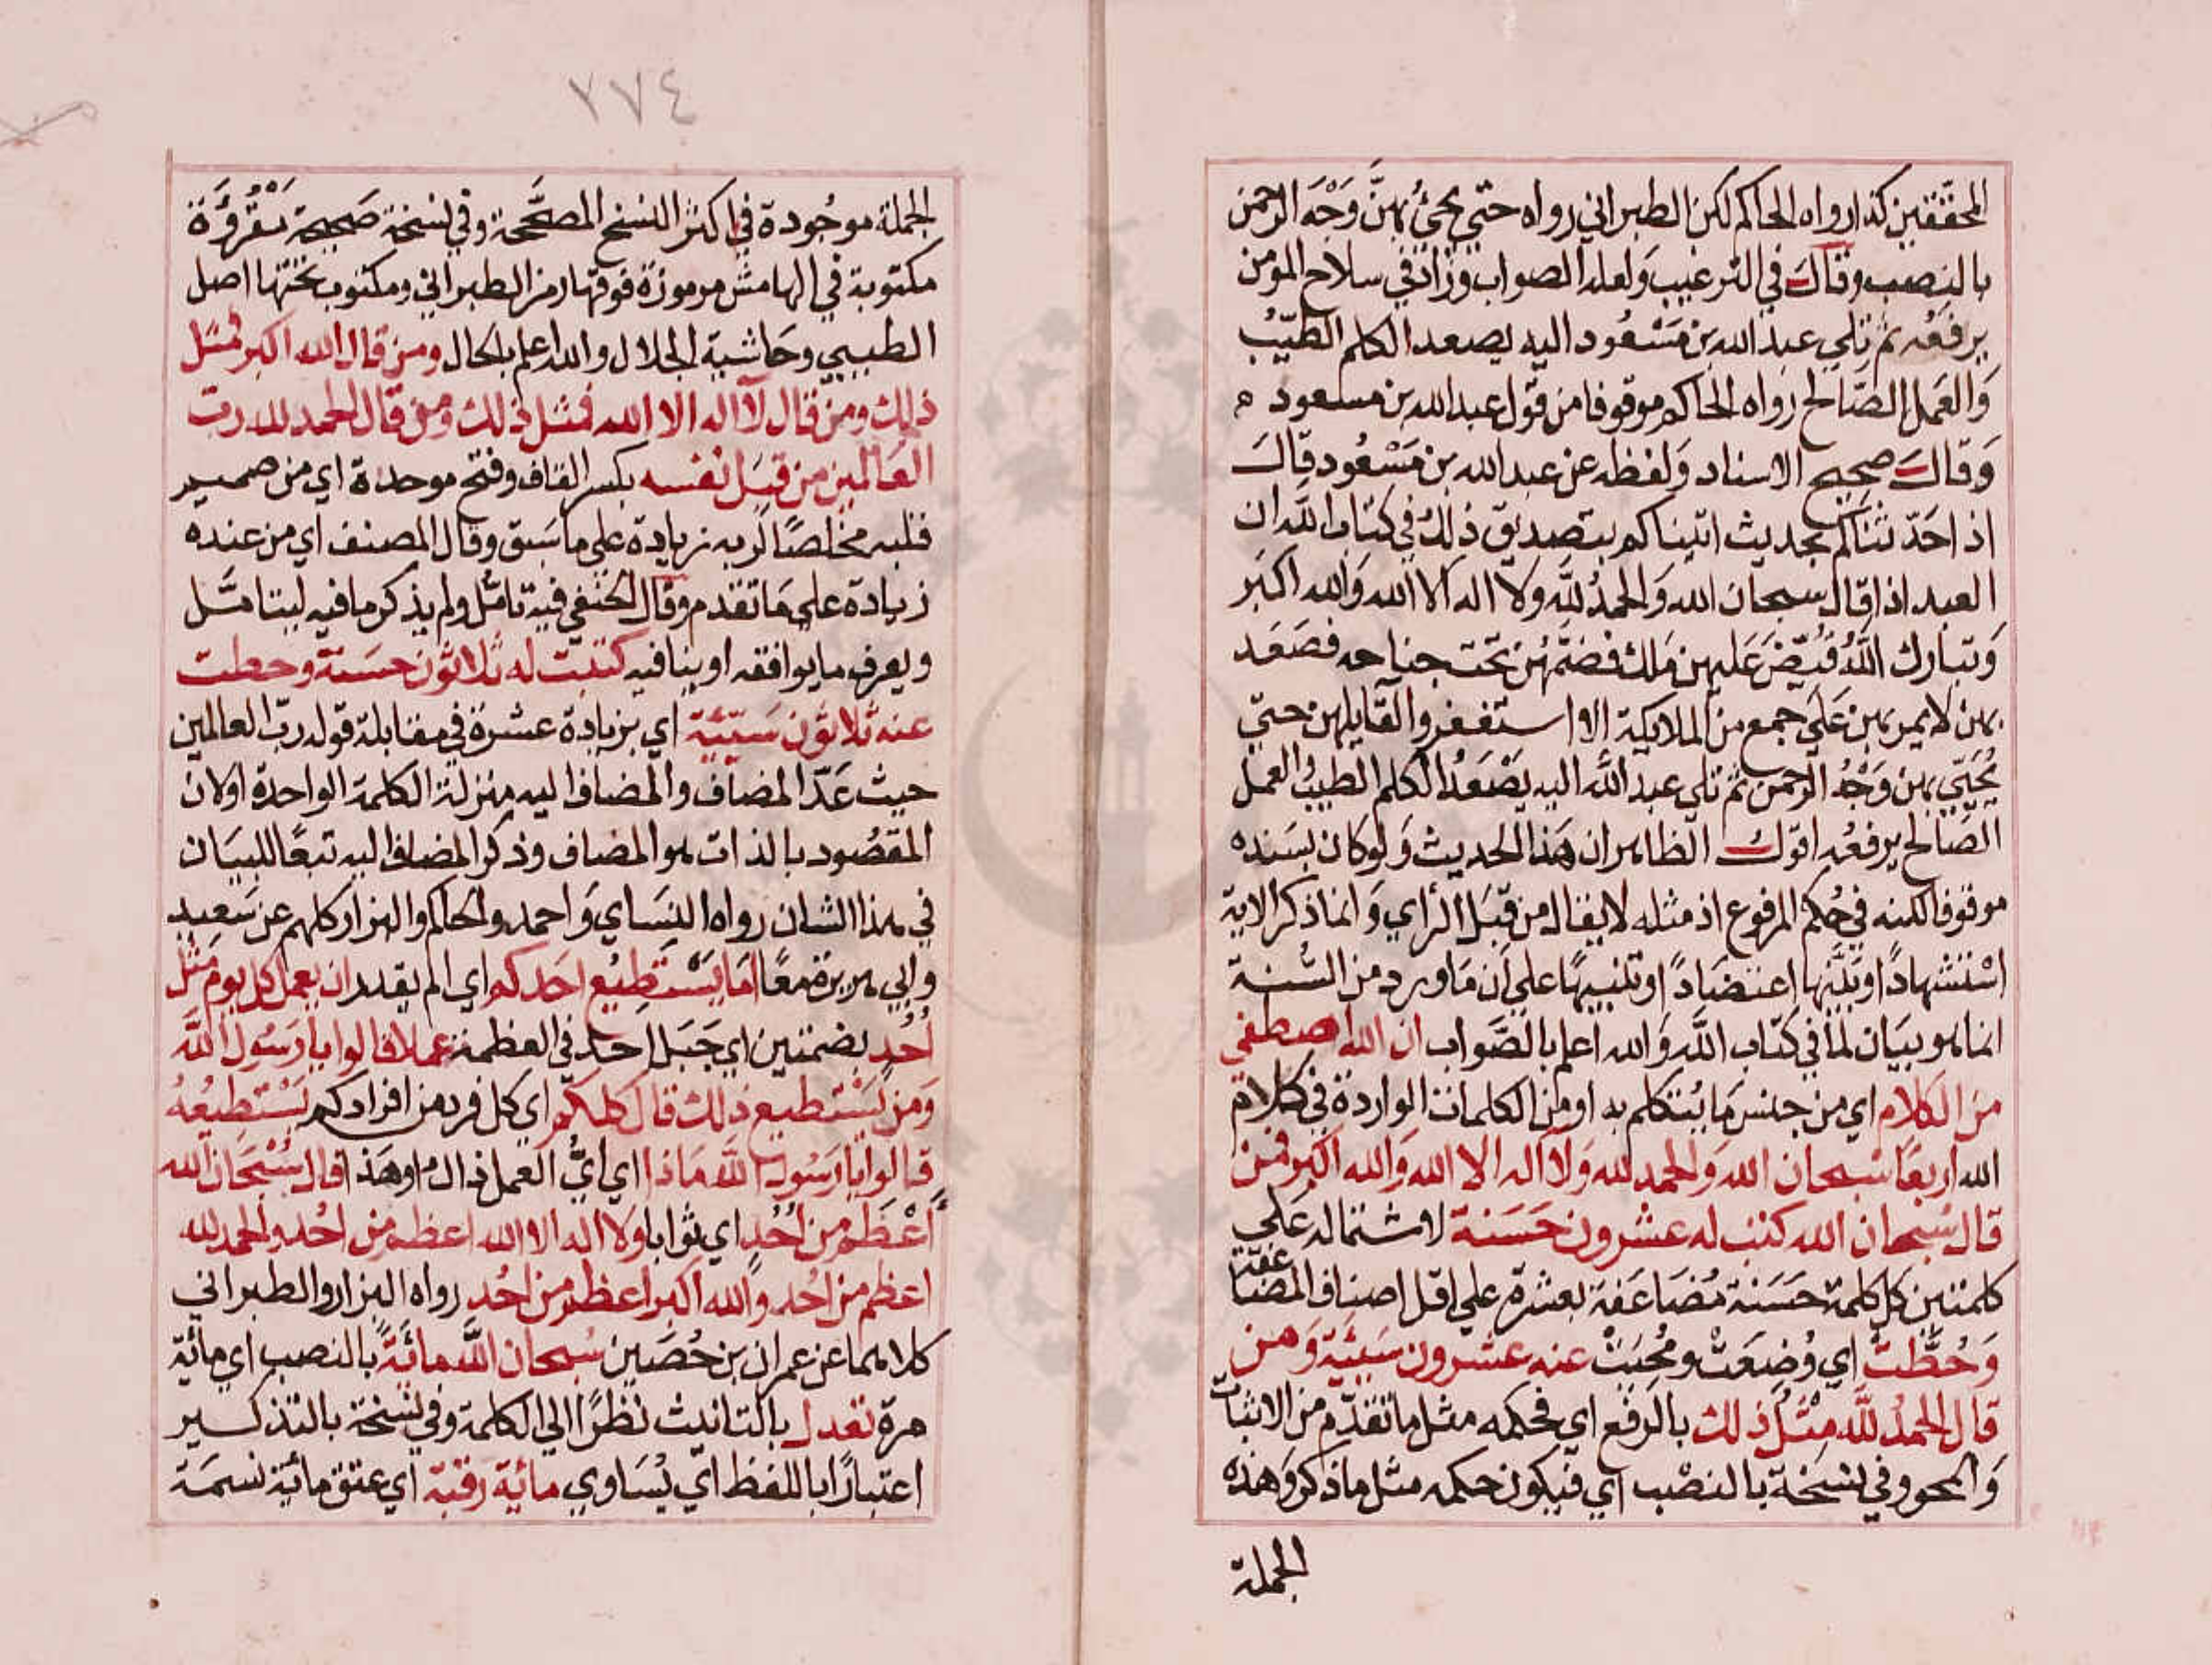 المحققين كذا رواه الحاكم لكن الطبراني رواه حتى يجئ بهنَّ وَجْهَ الرحمن
بالنصب وقال في الترغيب ولعله الصواب وزاد في سلاح المؤمن
يرفعُه ثم تلي عبد الله بن مَسْعُود اليه يصعد الكلم الطيّبُ
وَالعَمل الصّالح رواه الحاكم موقوفا من قول عبد الله بن مسعود ه
وَقالَ صحيح الاسناد وَلفظه عن عبد الله بن مَسْعُود قالَ
اذا حَدّثناكم بحديث اتيناكم بتصديق ذلك في كتاب الله ان
العبد اذا قال سبحان الله وَالحمدُ للَّه ولا اله الا الله وَالله اكبَر
وَتبارك اللَّهُ قُبِّضَ عَليهن مَلك فضَمَّهُنّ تحت جناحه فصَعَد
بهن لا يمر بهن عَلَى جمع من الملايكة الا استغفروا لقايلهن حتي
يُحَيّي بهن وَجْهُ الرحمن ثم تلي عبد الله اليه يَصْعَدُ الكلم الطيبُ والعمل
الصَّالح يرفعُه اقول الظاهر ان هَذا الحديث وَلوكان بسَنده
موقوفا لكنه في حُكم المرفوع اذ مثله لا يقال من قبَل الراي وَانما ذكر الاية
اسْتشهادًا اعتضَادًا او تنبيهًا علي ان مَا ورد من السُّنة
انما هو بيَان لما في كتاب اللَّه وَالله اعلم بالصَّواب ان الله اصطفي
من الكلام اي من جنس مَا يُتكلم به او من الكلمات الواردة في كلام
الله اربعًا سُبحان الله وَالحمد لله وَلا اله الا الله وَالله اكبر فمن
قال سُبحان الله كتب له عشرون حَسَنة لاشتماله عَلَى
كلمتين كل كلمة حَسَنة مُضَاعَفة بعشرة علي اقل اصناف المضاعفة
وَحُطَّتْ اي وُضِعَتْ ومُحِيَتْ عنه عشرون سَيّئَة وَمن
قال الحمدُ للَّه مِثْلُ ذلك بالرفع اي فحكمه مثل ما تقدّم من الاثبات
وَالمحو وفي نسْخة بالنصْب اي فيكون حكمه مثل ما ذكر وَهَذه
الجملة
٧٧٤
الجملة موجُودة في اكثر النسخ المصَحَّحة وفي نسْخة صَحيحة مَقْرُوَّة
مكتوبة في الهامش مرموزة فوقها رمز الطبراني ومكتوب تحتها اصل
الطبيبي وحَاشية الجلال والله اعلم بالحال ومن قال الله اكبر فمثل
ذلك ومن قال لا اله الا الله فمثل ذلك ومن قال الحمد لله رب
العَالمين من قِبَل نفسه بكسر القاف وفتح موحدة اي من صميـر
قلبه مخلصًا لربه زيادة علي ما سَبق وقال المصنف اي من عنده
زيادة علي مَا تقدم وقال الحنفي فيه تامُّل ولم يذكر ما فيه ليتامَّل
ويعرف ما يوافقه او ينافيه كتبت له ثلاثون حسَنة وحطت
عنه ثلاثون سَيّئة اي بزيادة عشرة في مقابلة قوله ربّ العالمين
حيث عَدّ المضاف والمضاف اليه منزلة الكلمة الواحدة او لان
المقصُود بالذات هو المضاف وذكر المضاف اليه تبعًا للبيَان
في هذا الشان رواه النسَاي وَاحمد والحاكم والبزار كلهم عن سَعيد
وابي هريرة معًا امَا يَسْتطِيْع احَدكم اي الم يقدر ان يعمل كل يوم مثل
اُحُدٍ بضمتين اي جَبَل احد في العظمة عملا قالوا يا رَسُول اللَّه
وَمن يَسْتطيع ذلك قال كلكم اي كل فرد من افرادكم يَسْتطيعُهُ
قالوا يا رَسُول اللَّه مَاذا اي ايُّ العمل ذالك او هَذا قال سُبْحَان الله
اَعْظَم من اُحُدٍ اي ثوابا ولا اله الا الله اعظم من اُحُد والحمد لله
اعظم من احُد وَالله اكبر اعظم من احُد رواه البزار والطبراني
كلاهما عن عمران بن حُصَين سُبحان اللَّه مائَةً بالنصب اي مائة
مرة تعدل بالتانيث نظرًا الي الكلمة وفي نسْخة بالتذكـير
اعتبارًا باللفظ اي يُسَاوي مائة رقبة اي عتق مائة نسمَة